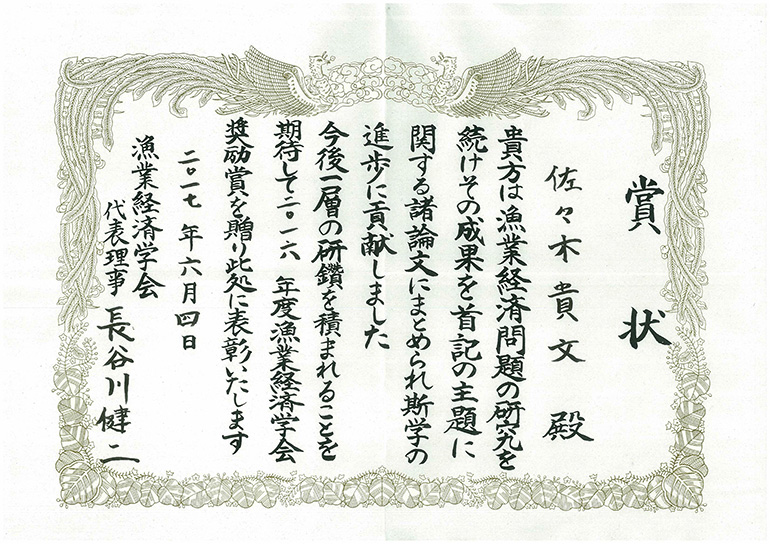 賞状
佐々木貴文 殿
貴方は漁業経済問題の研究を
続けその成果を首記の主題に
関する諸論文にまとめられ斯学の
進歩に貢献しました
今後一層の研鑽を積まれることを
期待して二〇一六年度漁業経済学会
奨励賞を贈り此処に表彰いたします
二〇一七年六月四日
漁業経済学会
代表理事 長谷川健二